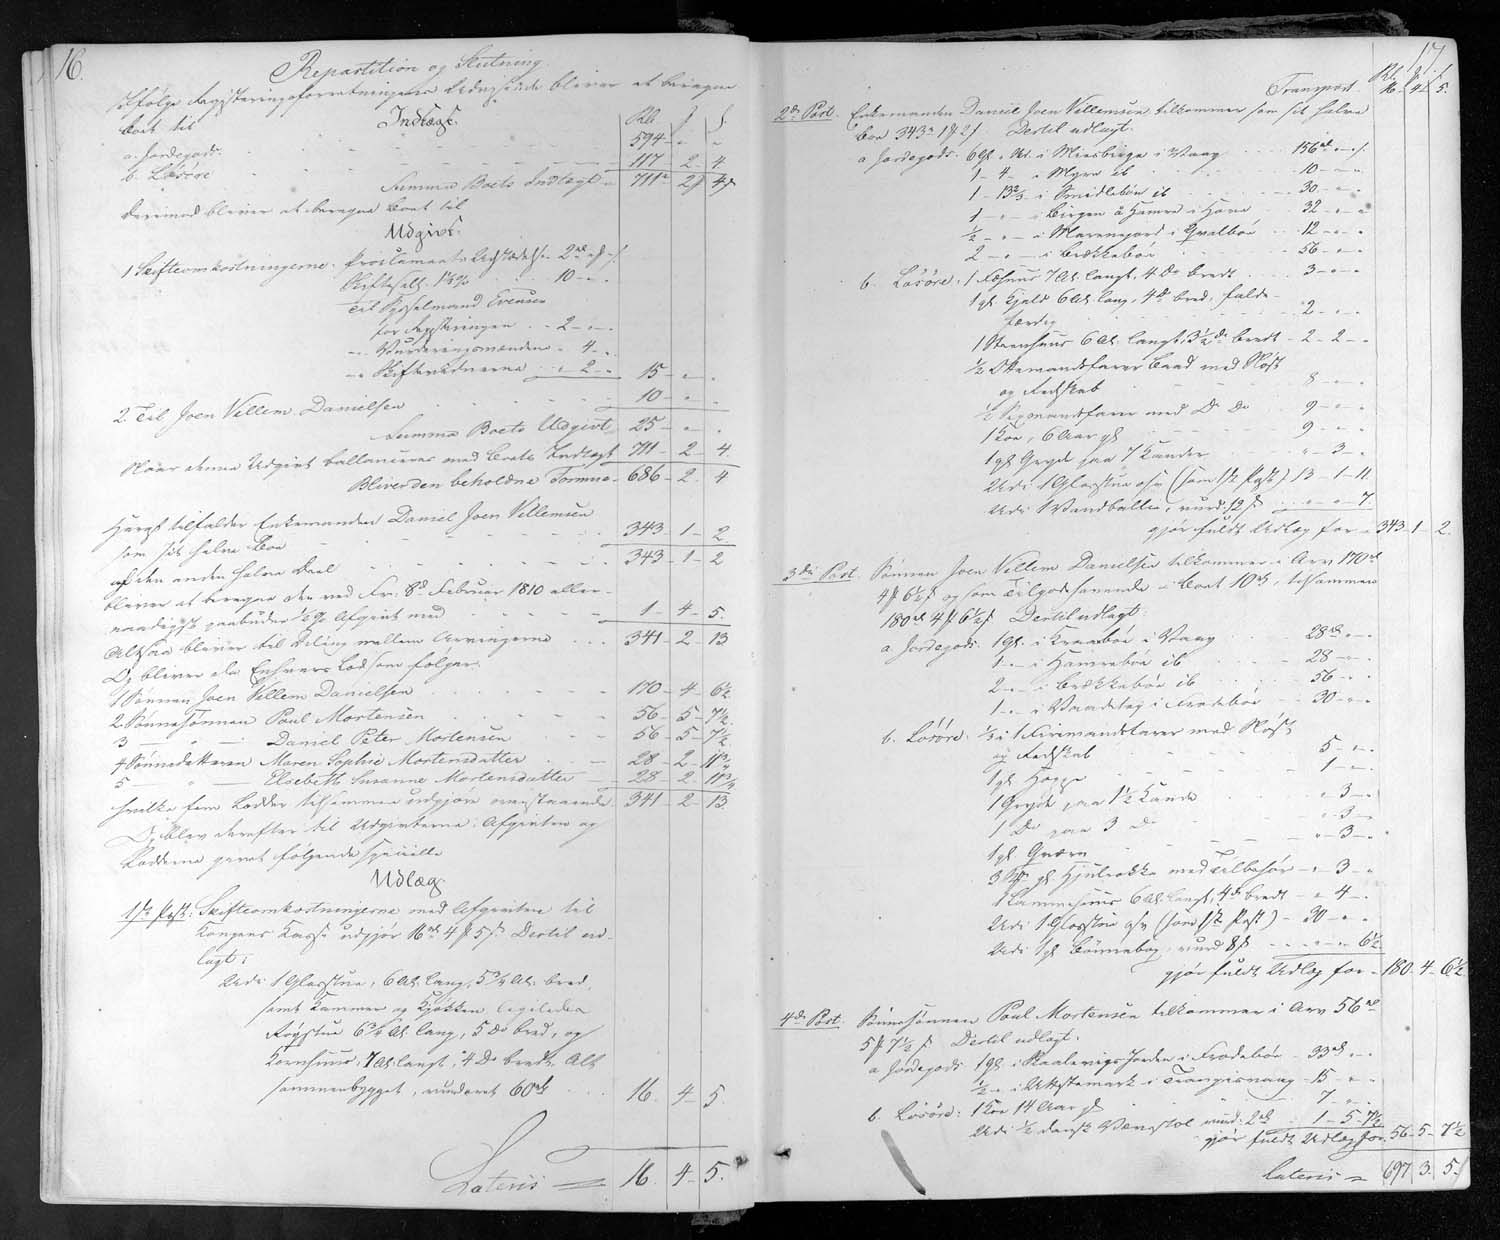 16.
Repartition og Slutning.
Ifølge Registreringsforretningens Udvisende bliver at beregne
Boet til Indtægt. Rd. ꝭ ꞵ
a. Jordegods 594 - " - "
b. Løsøre 117 - 2 - 4
Summa Boets Indtægt 711 2 4
Derimod bliver at beregne Boet til
Udgivt.
1. Skifteomkostningerne. Proclamaets Udstædelse 2
Skiftesalt. 1½% 10 - "
Til Sysselmand Evensen
for Registeringen 2 - "
" Vurderingsmændene 4 - "
" Skiftevidnerne 2 - " 15 - " - "
2. Til Joen Villem Danielsen 10 - " - "
Summa Boets Udgivt 25 - " - "
Naar denne Udgivt ballanceres med Boets Indtægt 711 - 2 - 4
Bliver den beholdne Formue 686 - 2 - 4
Heraf tilfalder Enkemanden Daniel Joen Villemsen
som sit halve Boe 343 - 1 - 2
af den anden halve Deel 343 - 1 - 2
bliver at beregne den ved Fr. 8de Februar 1810 aller-
naadigst paabudne ½% Afgivt med 1 - 4 - 5
Altsaa bliver til Deling mellem Arvingerne 341 - 2 - 13
Og bliver da Enhvers Lod som følger:
1 Sønnen Joen Villem Danielsen 170 - 4 - 6½
2 Sønnesønnen Poul Mortensen 56 - 5 - 7½
3 — " — Daniel Peter Mortensen 56 - 5 - 7½
4 Sønnedatteren Maren Sophie Mortensdatter 28 - 2 - 11¾
5 — " — Elsebeth Susanne Mortensdatter 28 - 2 - 11¾
Hvilke fem Lodder tilsammen udgjøre ovenstaaende 341 - 2 - 13
Og blev derefter til Udgivterne: Afgivten og
Lodderne gjort følgende specielle
Udlæg
1ste Post: Skifteomkostningerne med Afgivten til
Kongens Kasse udgjør 16 4 5. Dertil ud-
lagt:
Udi 1 Glasstue, 6 Al. lang, 5¾ Al. bred,
samt Kammer og Kjøkken
Røgstue 6¾ Al. lang, 5 Do bred, og
Kornhuus, 7 Al. langt, 4 Do bredt, Alt
sammenbygget, vurderet 60 16 - 4 - 5
Lateris 16 - 4 - 5.
17.
Transport. 16 - 4 - 5.
2den Post. Enkemanden Daniel Joen Villemsen tilkommer som sit halve
Boe 343 1 2 Dertil udlagt.
a Jordegods: 6 Gl. " i Vaag 156
1 - 4 - i Myre ib 10 - " - "
1 - 13⅔ i Smidlebøe ib 30 - " - "
1 - " - i Birgen å Hamre i Hove 32 - " - "
½ - " - i i Qvalbøe 12 - " - "
2 - " - i Bekkebøe 56 - " - "
b. Løsøre: 1 Fæhuus 7 Al. langt, 4 Do bredt 3 - " - "
1 gl. Hjald 6 Al. lang, 4 bred, falde-
færdig " 2 - "
1 Steenhuus 6 Al. langt, 3½ Do bredt - 2 - 2 - "
½ Ottemandsfarer Baad med Mast
og Redskab 8 - " - "
½ Sexmandsfarer med Do Do 9 - " - "
1 Koe, 6 Aar gl. 9 - " - "
1 gl. Gryde paa 7 Kander " - 3 - "
Udi 1 Glasstue osv (som 1ste Post) 13 - 1 - 11
Udi 1 Vandballie, vurd. 12 " - " - 7
gjør fuldt Udlæg for - 343 - 1 - 2.
3die Post. Sønnen Joen Villem Danielsen tilkommer i Arv 170
4 6½ og som Tilgodehavende i Boet 10, tilsammen
180 4 6½ Dertil udlagt:
a Jordegods: 1 Gl. i Krosbøe i Vaag 28 - " - "
1 - " - i Hamrebøe ib 28 - " - "
2 - " - i Bekkebøe ib 56 - " - "
1 - " - i i Frodebøe 30 - " - "
b. Løsøre: ½ i 1 Firemandsfarer med Mast
og Redskab 5 - " - "
1 gl. 1 - " - "
1 Gryde paa 1½ Kande " - 3 - "
1 Do paa 3 Do " - 3 - "
1 gl. Qværn " - 3 - "
3 gl. Hjulrokke med Tilbehør " - 3 - "
1 Lammehuus 6 Al. langt, 4 bredt - " 4 - "
Udi 1 Glasstue osv (som 1ste Post) - 30 - " - "
Udi 1 gl. Bønnebog, vurd 8 " - " - 6½
gjør fuldt Udlæg for - 180. 4 - 6½
4de Post. Sønnesønnen Poul Mortensen tilkommer i Arv 56
5 7½ Dertil udlagt:
a Jordegods 1 Gl. i Jorden i Frodebøe - 33 - " - "
½ - " i i Trangisvaag 15 - " - "
b. Løsøre: 1 Koe 14 Aar gl 7 - " - "
Udi ½ dansk Vævstol vurd. 2 1 - 5 - 7½
gjør fuldt Udlæg for 56 - 5 - 7½
Lateris 697. 3. 5.